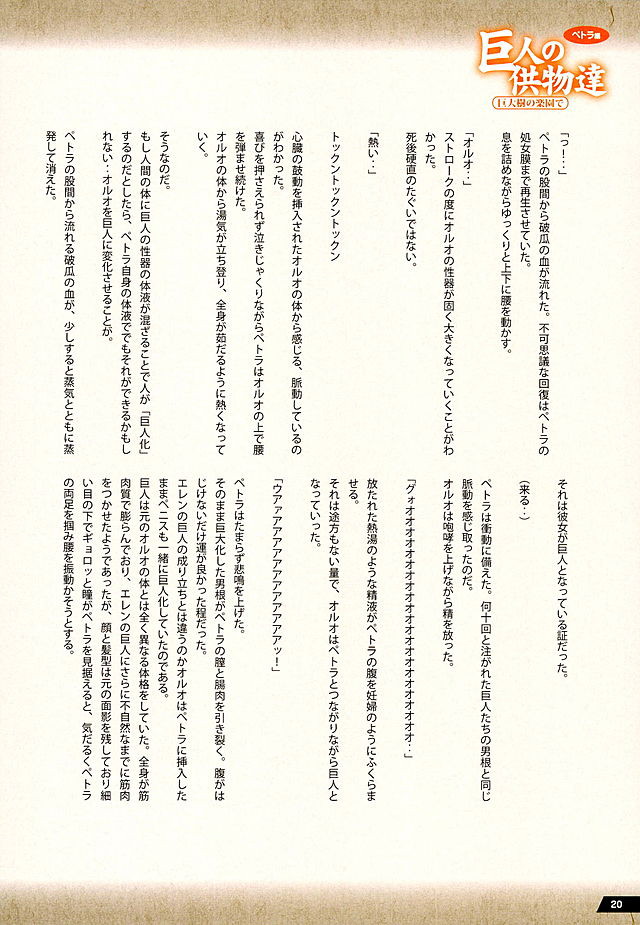 ペトラ編
巨人の
供物達
巨大樹の楽園で
「っ！‥」
ペトラの股間から破瓜の血が流れた。不可思議な回復はペトラの
処女膜まで再生させていた。
息を詰めながらゆっくりと上下に腰を動かす。
「オルオ‥」
ストロークの度にオルオの性器が固く大きくなっていくことがわ
かった。
死後硬直のたぐいではない。
「熱い‥」
トックントックントックン
心臓の鼓動を挿入されたオルオの体から感じる、脈動しているの
がわかった。
喜びを押さえられず泣きじゃくりながらペトラはオルオの上で腰
を弾ませ続けた。
オルオの体から湯気が立ち登り、全身が茹だるように熱くなって
いく。
そうなのだ。
もし人間の体に巨人の性器の体液が混ざることで人が「巨人化」
するのだとしたら、ペトラ自身の体液ででもそれができるかもし
れない‥オルオを巨人に変化させることが。
ペトラの股間から流れる破瓜の血が、少しすると蒸気とともに蒸
発して消えた。
それは彼女が巨人となっている証だった。
（来る‥）
ペトラは衝動に備えた。何十回と注がれた巨人たちの男根と同じ
脈動を感じ取ったのだ。
オルオは咆哮を上げながら精を放った。
「グォオオオオオオオオオオオオオオオオオオオ‥」
放たれた熱湯のような精液がペトラの腹を妊婦のようにふくらま
せる。
それは途方もない量で、オルオはペトラとつながりながら巨人と
なっていった。
「ウアァアアアアアアアアアアアアッ！」
ペトラはたまらず悲鳴を上げた。
そのまま巨大化した男根がペトラの膣と腸肉を引き裂く。腹がは
じけないだけ運が良かった程だった。
エレンの巨人の成り立ちとは違うのかオルオはペトラに挿入した
ままペニスも一緒に巨人化していたのである。
巨人は元のオルオの体とは全く異なる体格をしていた。全身が筋
肉質で膨らんでおり、エレンの巨人にさらに不自然なまでに筋肉
をつかせたようであったが、顔と髪型は元の面影を残しており細
い目の下でギョロッと瞳がペトラを見据えると、気だるくペトラ
の両足を掴み腰を振動かそうとする。
20